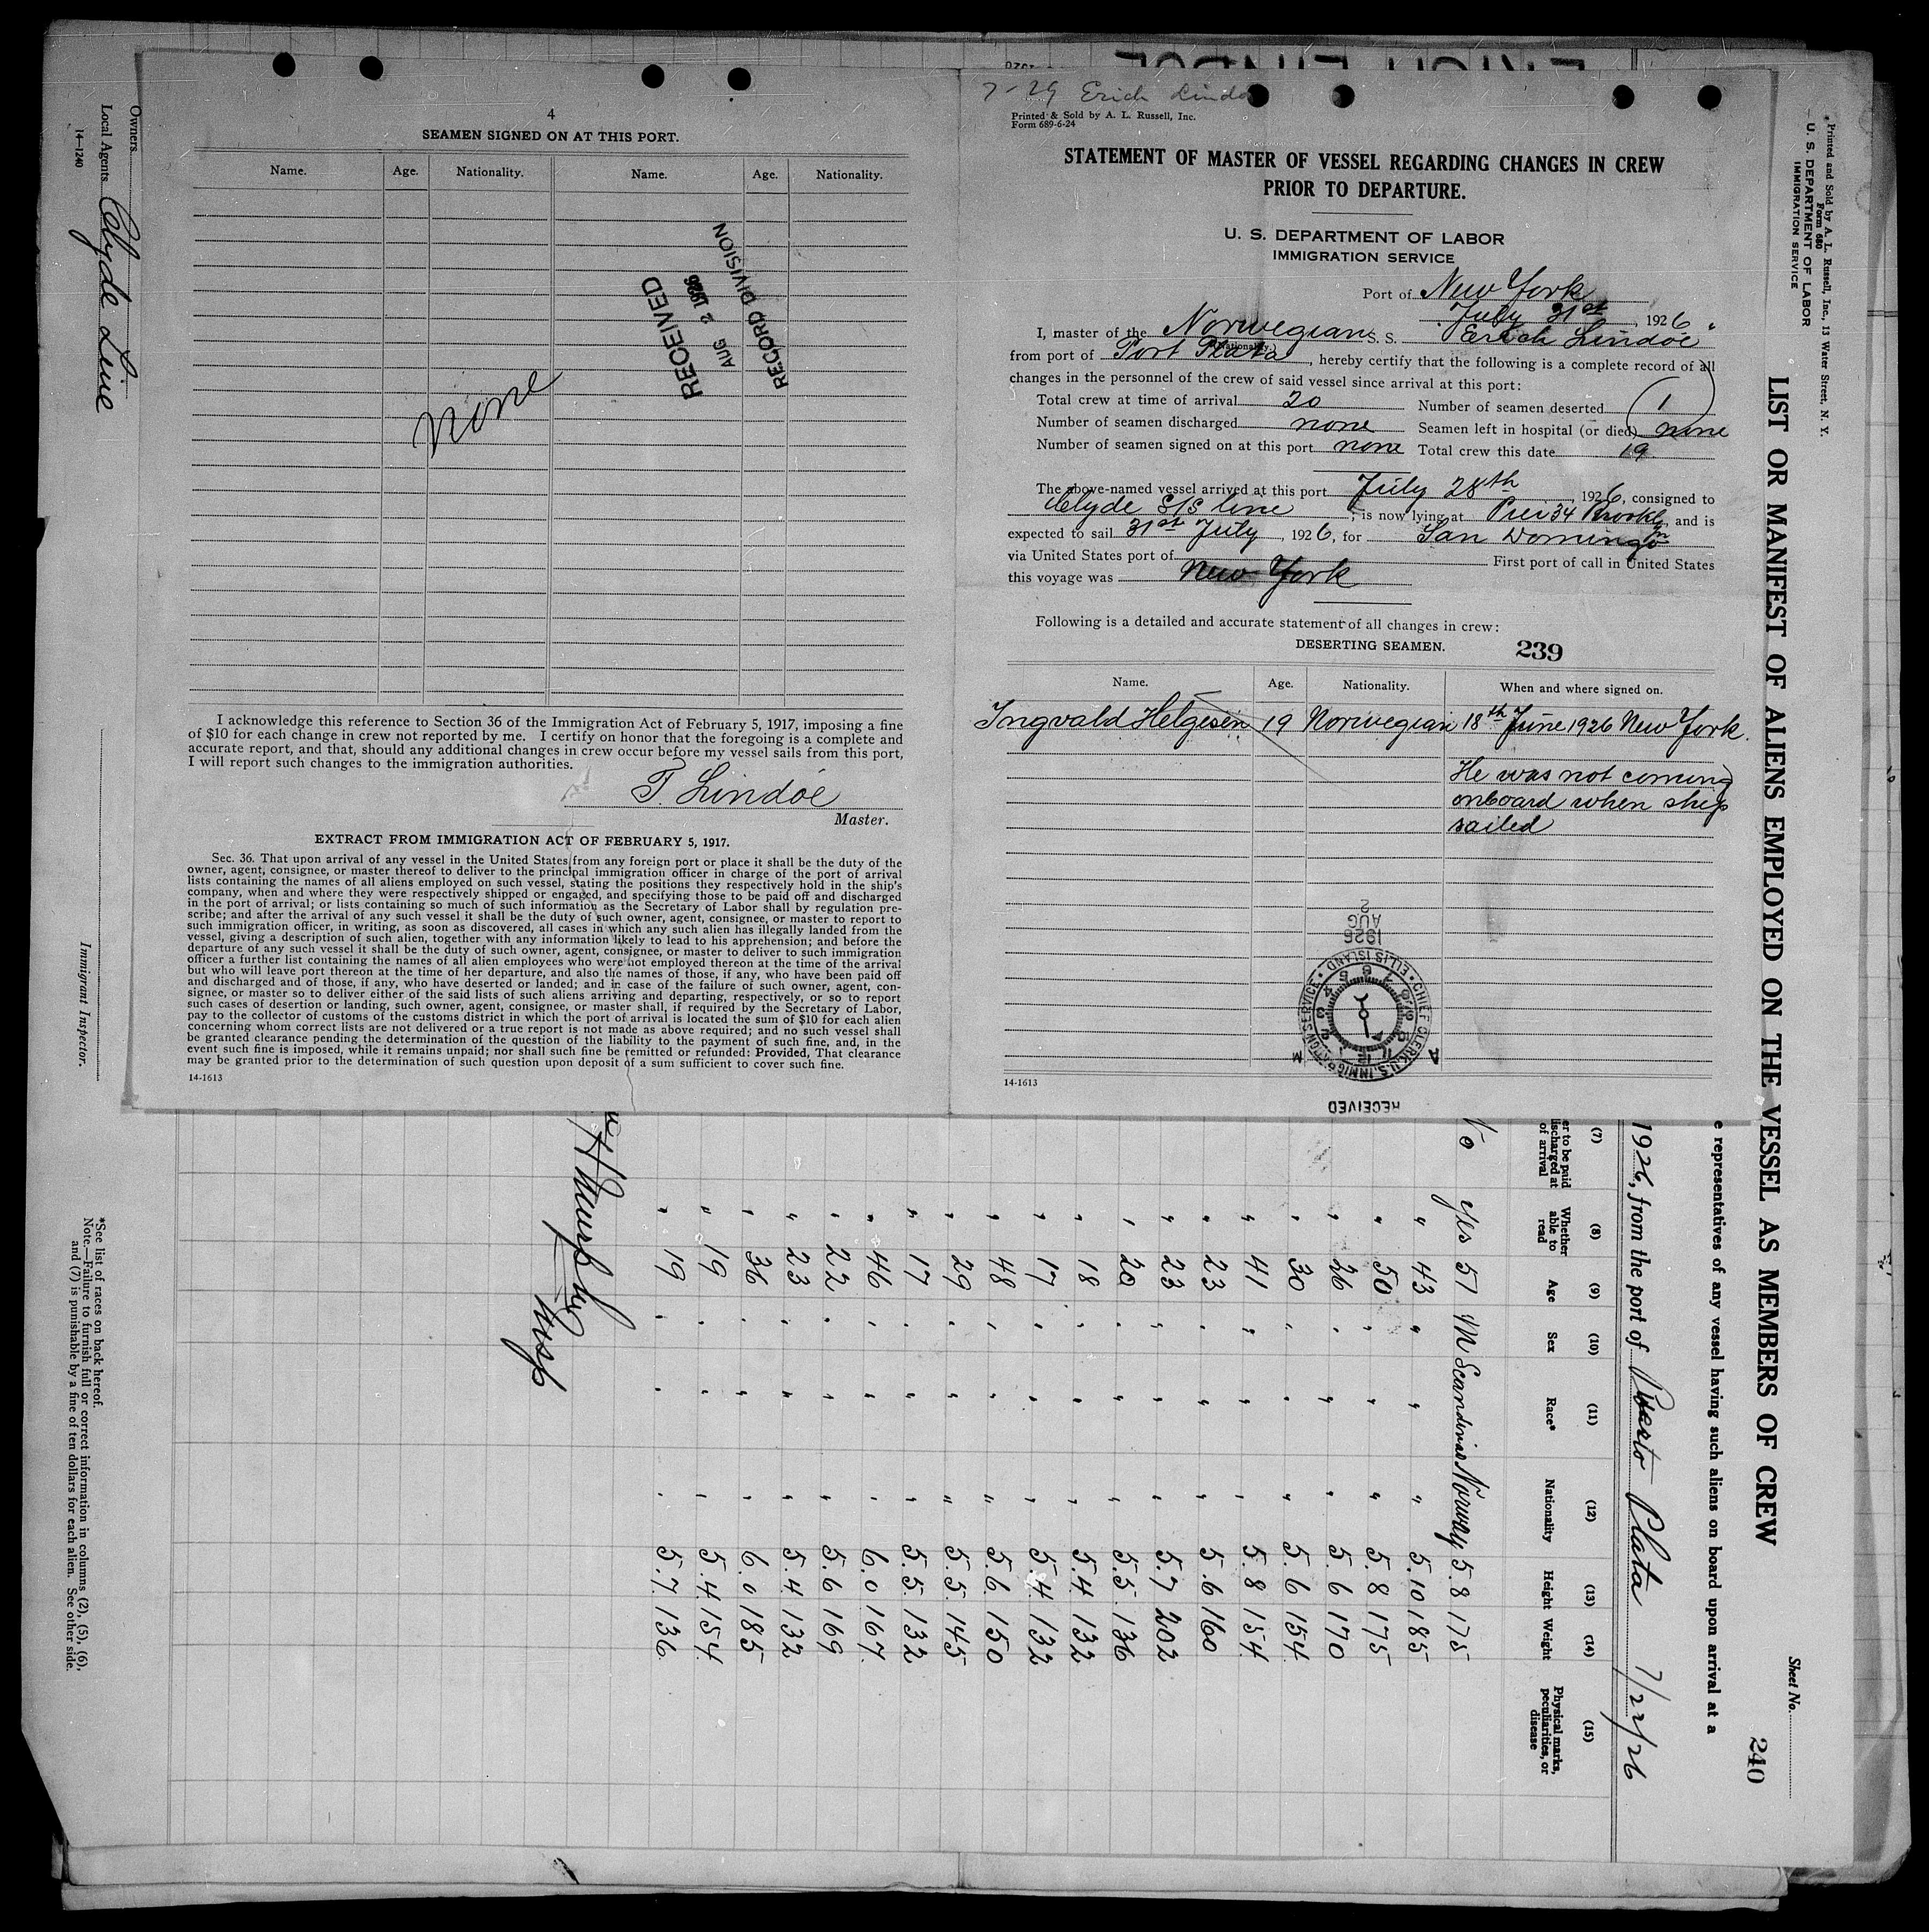 4
SEAMEN SIGNED ON AT THIS PORT.
Name. Age. Nationality. Name. Age. Nationality.
RECEIVED
AUG 2 1926
RECORD DIVISION
none
I acknowledge this reference to Section 36 of the Immigration Act of February 5, 1917, imposing a fine
of $10 for each change in crew not reported by me. I certify on honor that the foregoing is a complete and
accurate report, and that, should any additional changes in crew occur before my vessel sails from this port,
I will report such changes to the immigration authorities.
T. Lindöe
Master.
EXTRACT FROM IMMIGRATION ACT OF FEBRUARY 5, 1917.
Sec. 36. That upon arrival of any vessel in the United States from any foreign port or place it shall be the duty of the
owner, agent, consignee, or master thereof to deliver to the principal immigration officer in charge of the port of arrival
lists containing the names of all aliens employed on such vessel, stating the positions they respectively hold in the ship's
company, when and where they were respectively shipped or engaged, and specifying those to be paid off and discharged
in the port of arrival; or lists containing so much of such information as the Secretary of Labor shall by regulation pre-
scribe; and after the arrival of any such vessel it shall be the duty of such owner, agent, consignee, or master to report to
such immigration officer, in writing, as soon as discovered, all cases in which any such alien has illegally landed from the
vessel, giving a description of such alien, together with any information likely to lead to his apprehension; and before the
departure of any such vessel it shall be the duty of such owner, agent, consignee, or master to deliver to such immigration
officer a further list containing the names of all alien employees who were not employed thereon at the time of the arrival
but who will leave port thereon at the time of her departure, and also the names of those, if any, who have been paid off
and discharged and of those, if any, who have deserted or landed; and in case of the failure of such owner, agent, con-
signee, or master so to deliver either of the said lists of such aliens arriving and departing, respectively, or so to report
such cases of desertion or landing, such owner, agent, consignee, or master shall, if required by the Secretary of Labor,
pay to the collector of customs of the customs district in which the port of arrival is located the sum of $10 for each alien
concerning whom correct lists are not delivered or a true report is not made as above required; and no such vessel shall
be granted clearance pending the determination of the question of the liability to the payment of such fine, and, in the
event such fine is imposed, while it remains unpaid; nor shall such fine be remitted or refunded: Provided, That clearance
may be granted prior to the determination of such question upon deposit of a sum sufficient to cover such fine.
14-1613
7-29 Erich Lindo
Printed & Sold by A. L. Russell, Inc.
Form 689-6-24
STATEMENT OF MASTER OF VESSEL REGARDING CHANGES IN CREW
PRIOR TO DEPARTURE.
U. S. DEPARTMENT OF LABOR
IMMIGRATION SERVICE
Port of New York
July 31st, 1926.
I, master of the Norwegian S. S. Erich Lindöe
(Nationality.)
from port of Port Plata, hereby certify that the following is a complete record of all
changes in the personnel of the crew of said vessel since arrival at this port:
Total crew at time of arrival 20 Number of seamen deserted 1
Number of seamen discharged none Seamen left in hospital (or died) none
Number of seamen signed on at this port none Total crew this date 19
The above-named vessel arrived at this port July 28th, 1926, consigned to
Clyde S/S line, is now lying at Pier 34 Brooklyn, and is
expected to sail 31st July, 1926, for San Domingo
via United States port of First port of call in United States
this voyage was New York
Following is a detailed and accurate statement of all changes in crew:
DESERTING SEAMEN. 239
Name. Age. Nationality. When and where signed on.
Ingvald Helgesen 19 Norwegian 18th June 1926 New York.
He was not coming
onboard when ship
sailed
2
AUG
1926
CHIEF CLERK, U.S. IMMIGRATION SERVICE • ELLIS ISLAND •
RECEIVED
14-1613
Printed and Sold by A. L. Russell, Inc., 13 Water Street, N. Y.
Form 680
U. S. DEPARTMENT OF LABOR
IMMIGRATION SERVICE
Sheet No.
LIST OR MANIFEST OF ALIENS EMPLOYED ON THE VESSEL AS MEMBERS OF CREW
240
e representatives of any vessel having such aliens on board upon arrival at a
1926, from the port of Puerto Plata 7/22/26
(7) (8) (9) (10) (11) (12) (13) (14) (15)
er to be paid
ischarged at
of arrival
Whether
able to
read
Age Sex Race* Nationality Height Weight
Physical marks,
peculiarities, or
disease
No yes 51 M Scandinav Norway 5.8 175
" 43 " " " 5.10 185
" 50 " " " 5.8 175
" 26 " " " 5.6 170
" 30 " " " 5.6 154
" 41 " " " 5.8 154
" 23 " " " 5.6 160
" 23 " " " 5.7 202
" 20 " " " 5.5 136
" 18 " " " 5.4 132
" 17 " " " 5.4 132
" 48 " " " 5.6 150
" 29 " " " 5.5 145
" 17 " " " 5.5 132
" 46 " " " 6.0 167
" 22 " " " 5.6 169
" 23 " " " 5.4 132
" 36 " " " 6.0 185
" 19 " " " 5.4 154
" 19 " " " 5.7 136
H Murphy
Insp
Owners
Local Agents Clyde Line
14-1240
Immigrant Inspector.
*See list of races on back hereof.
Note.—Failure to furnish full or correct information in columns (2), (5), (6),
and (7) is punishable by a fine of ten dollars for each alien. See other side.